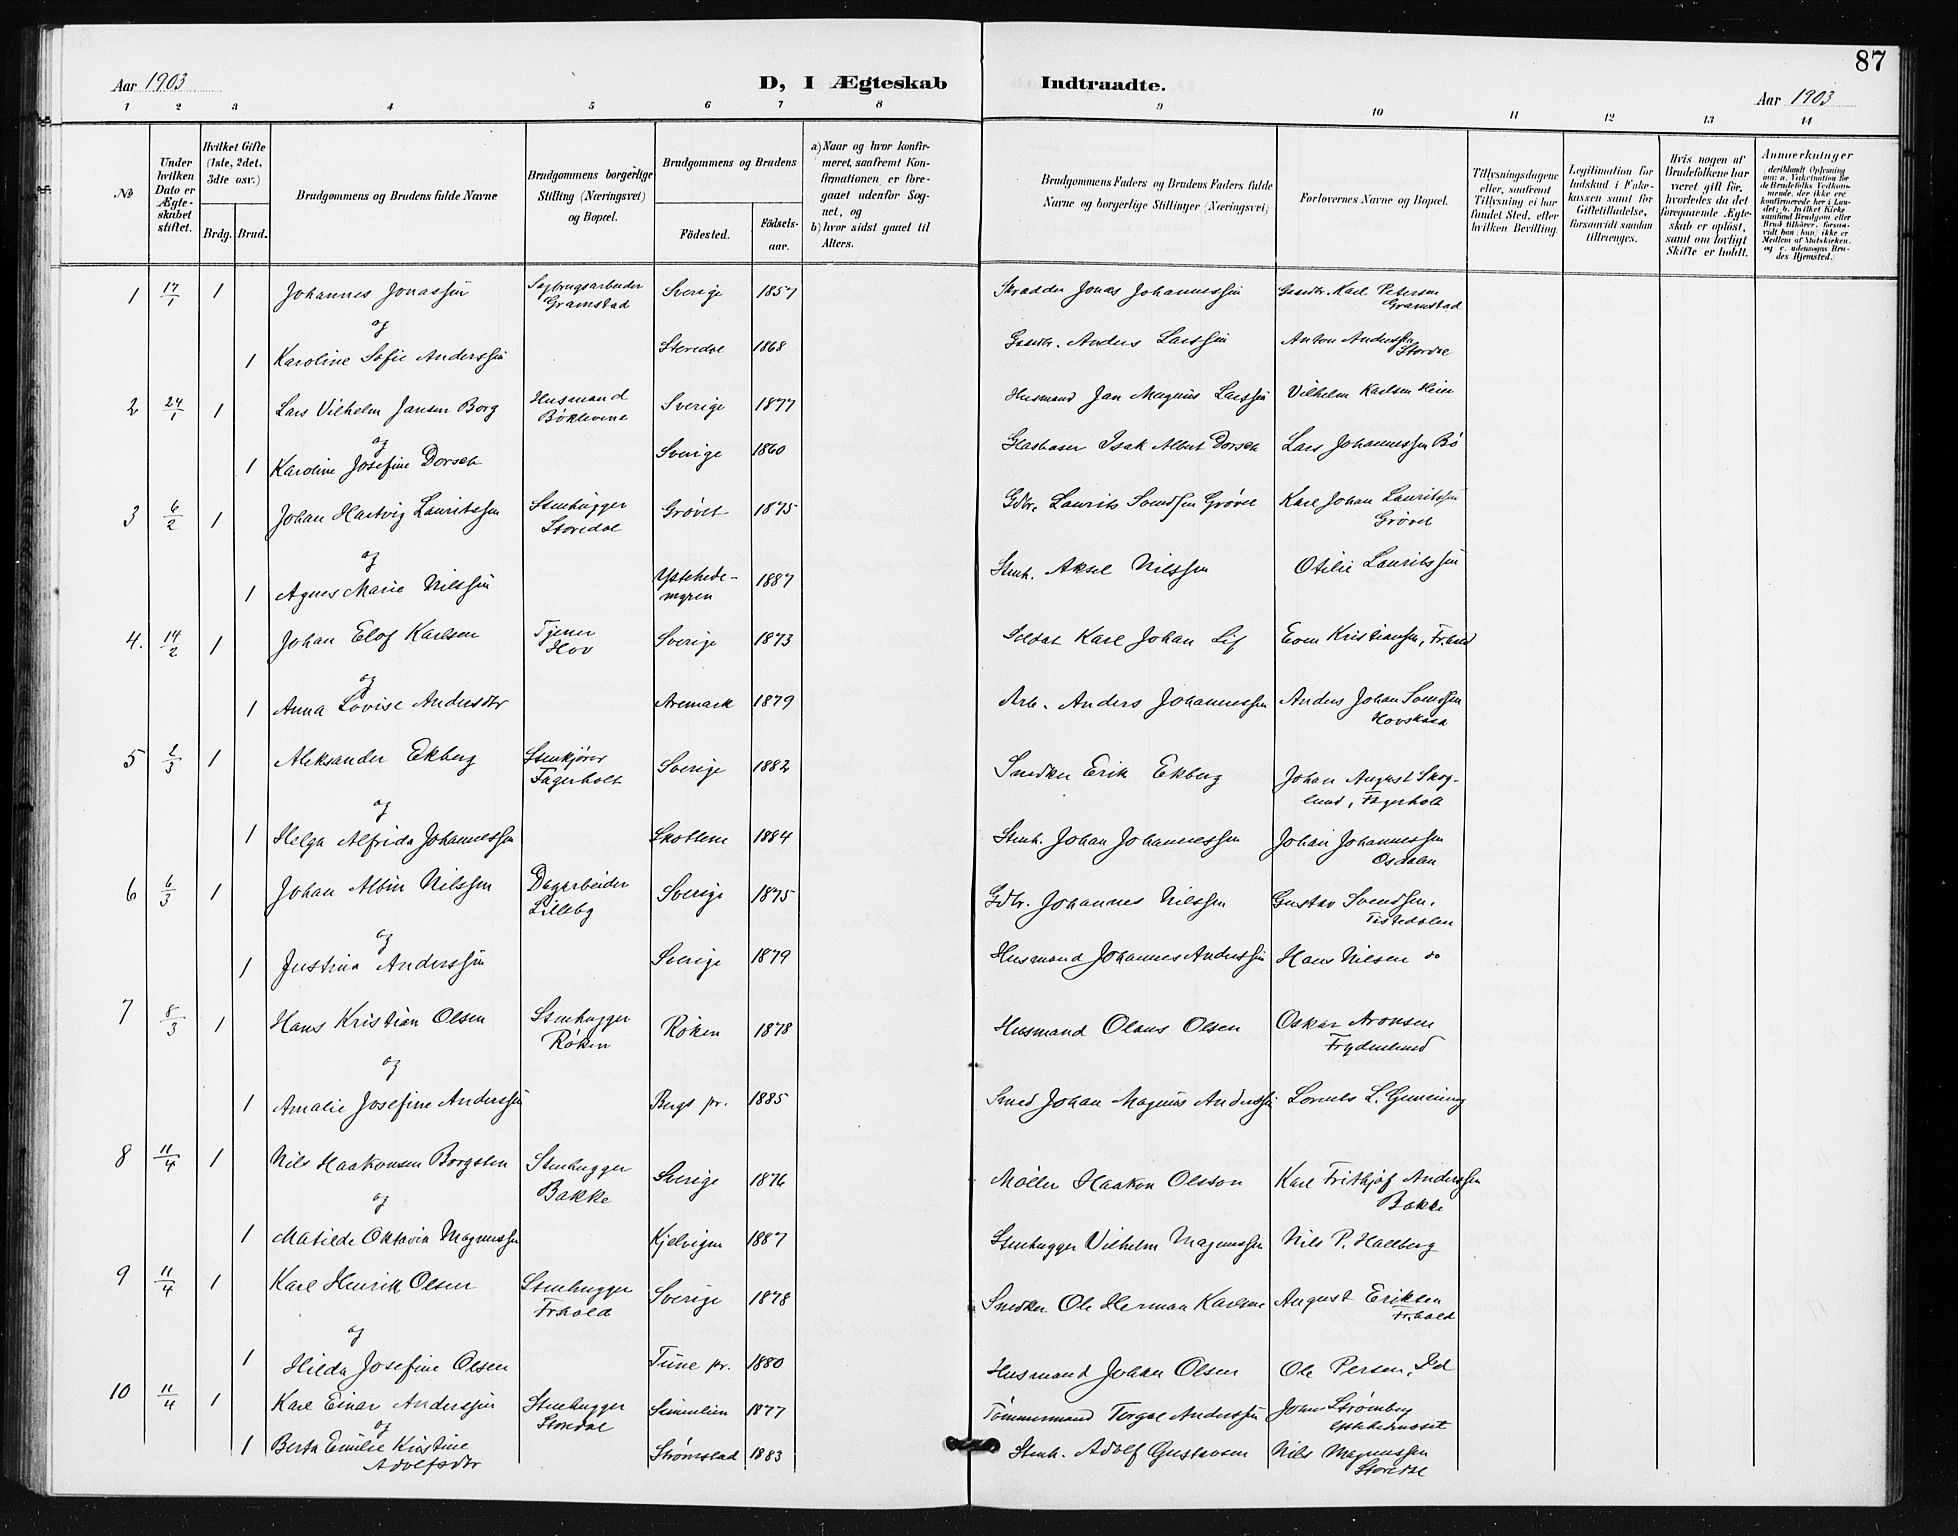 87
Aar 1903
D, I Ægteskab Indtraadte.
Aar 1903
1 2 3 4 5 6 7 8 9 10 11 12 13 14
No
Under hvilken Dato er Ægteskabet stiftet.
Hvilket Gifte (1ste, 2det, 3dte osv.)
Brdg. Brud.
Brudgommens og Brudens fulde Navne
Brudgommens borgerlige Stilling (Næringsvei) og Bopæl.
Brudgommens og Brudens
Fødested. Fødsels-aar.
a) Naar og hvor konfirmeret, saafremt Konfirmationen er foregaaet udenfor Sognet, og
b) hvor sidst gaaet til Alters.
Brudgommens Faders og Brudens Faders fulde Navne og borgerlige Stillinger (Næringsvei)
Forlovernes Navne og Bopæl.
Tillysningsdagene eller, saafremt Tillysning ei har fundet Sted, efter hvilken Bevilling.
Legitimation for Indskud i Enkekassen samt for Giftetilladelse, forsaavidt saadan tiltrænges.
Hvis nogen af Brudefolkene har været gift før, hvorledes da det foregaaende Ægteskab er opløst, samt om lovligt Skifte er holdt.
Anmerkninger
1 17/1 1 Johannes Jonassen Sagbrugsarbeider Gramstad Sverige 1857 Skrædder Jonas Johannessen Gaardbr. Karl Petersen Gramstad
og
1 Karoline Sofie Anderssen Storedal 1868 Gaardbr. Anders Larssen Anton Anderssen
2 24/1 1 Lars Vilhelm Jansen Borg Husmand Sverige 1877 Husmand Jan Magnus Larssen Vilhelm Karlsen Heier
og
1 Karoline Josefine Dorsch Sverige 1860 Isak Albert Dorsch Lars Johannessen Bø
3 6/2 1 Johan Hartvig Lauritssen Stenhugger Storedal Grøvet 1875 Gdbr. Laurits Svendsen Grøvet Karl Johan Lauritssen Grøvet
og
1 Agnes Marie Nilssen Ystehedemyren 1887 Stenh. Aksel Nilssen Otilie Lauritssen
4. 14/2 1 Johan Elof Karlsen Tjener Hov Sverige 1873 Soldat Karl Johan Lif Even Kristiansen, Fr.hald
og
1 Anna Lovise Andersdtr Aremark 1879 Arb. Anders Johannessen Anders Johan Svendsen
5 2/3 1 Aleksander Ekberg Stenkjører Fagerholt Sverige 1882 Snedker Erik Ekberg Johan August Skoglund, Fagerholt
og
1 Helga Alfrida Johannessen Skottene 1884 Stenh. Johan Johannessen Johan Johannessen
6 6/3 1 Johan Albin Nilssen Dagarbeider Lilleby Sverige 1875 Gdbr. Johannes Nilssen Gustav Svendsen, Tistedalen
og
1 Justina Anderssen Sverige 1879 Husmand Johannes Anderssen Hans Nilsen do
7 8/3 1 Hans Kristian Olsen Stenhugger Røken Røken 1878 Husmand Olaus Olsen Oskar Aronsen Frydenlund
og
1 Amalie Josefine Anderssen Bergs pr. 1885 Smed Johan Magnus Anderssen
8 11/4 1 Nils Haakonsen Borgsten Stenhugger Bakke Sverige 1876 Møller Haakon Olsson Karl Frithjof Anderssen Bakke
og
1 Matilde Oktavia Magnussen Kjelvigen 1887 Stenhugger Vilhelm Magnussen Nils P. Hallberg
9 11/4 1 Karl Henrik Olsen Stenhugger Frhald Sverige 1878 Snedker Ole Herman Karlsen August Eriksen Fr.hald
og
1 Hilda Josefine Olsen Tune pr. 1880 Husmand Johan Olsen Ole Persen, Id
10 11/4 1 Karl Einar Anderssen Stenhugger Storedal 1877 Tømmermand Anderssen Johan Strømberg
og
1 Berta Emilie Kristine Adolfsdtr Strømstad 1883 Stenh. Adolf Gustavsen Nils Magnussen Storedal